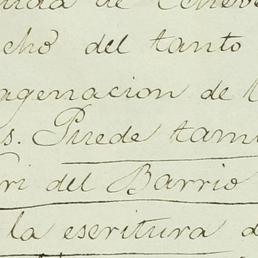 de
cho del tanto
agenacion de
s. Puede tam
ri del Barrio
la escritura